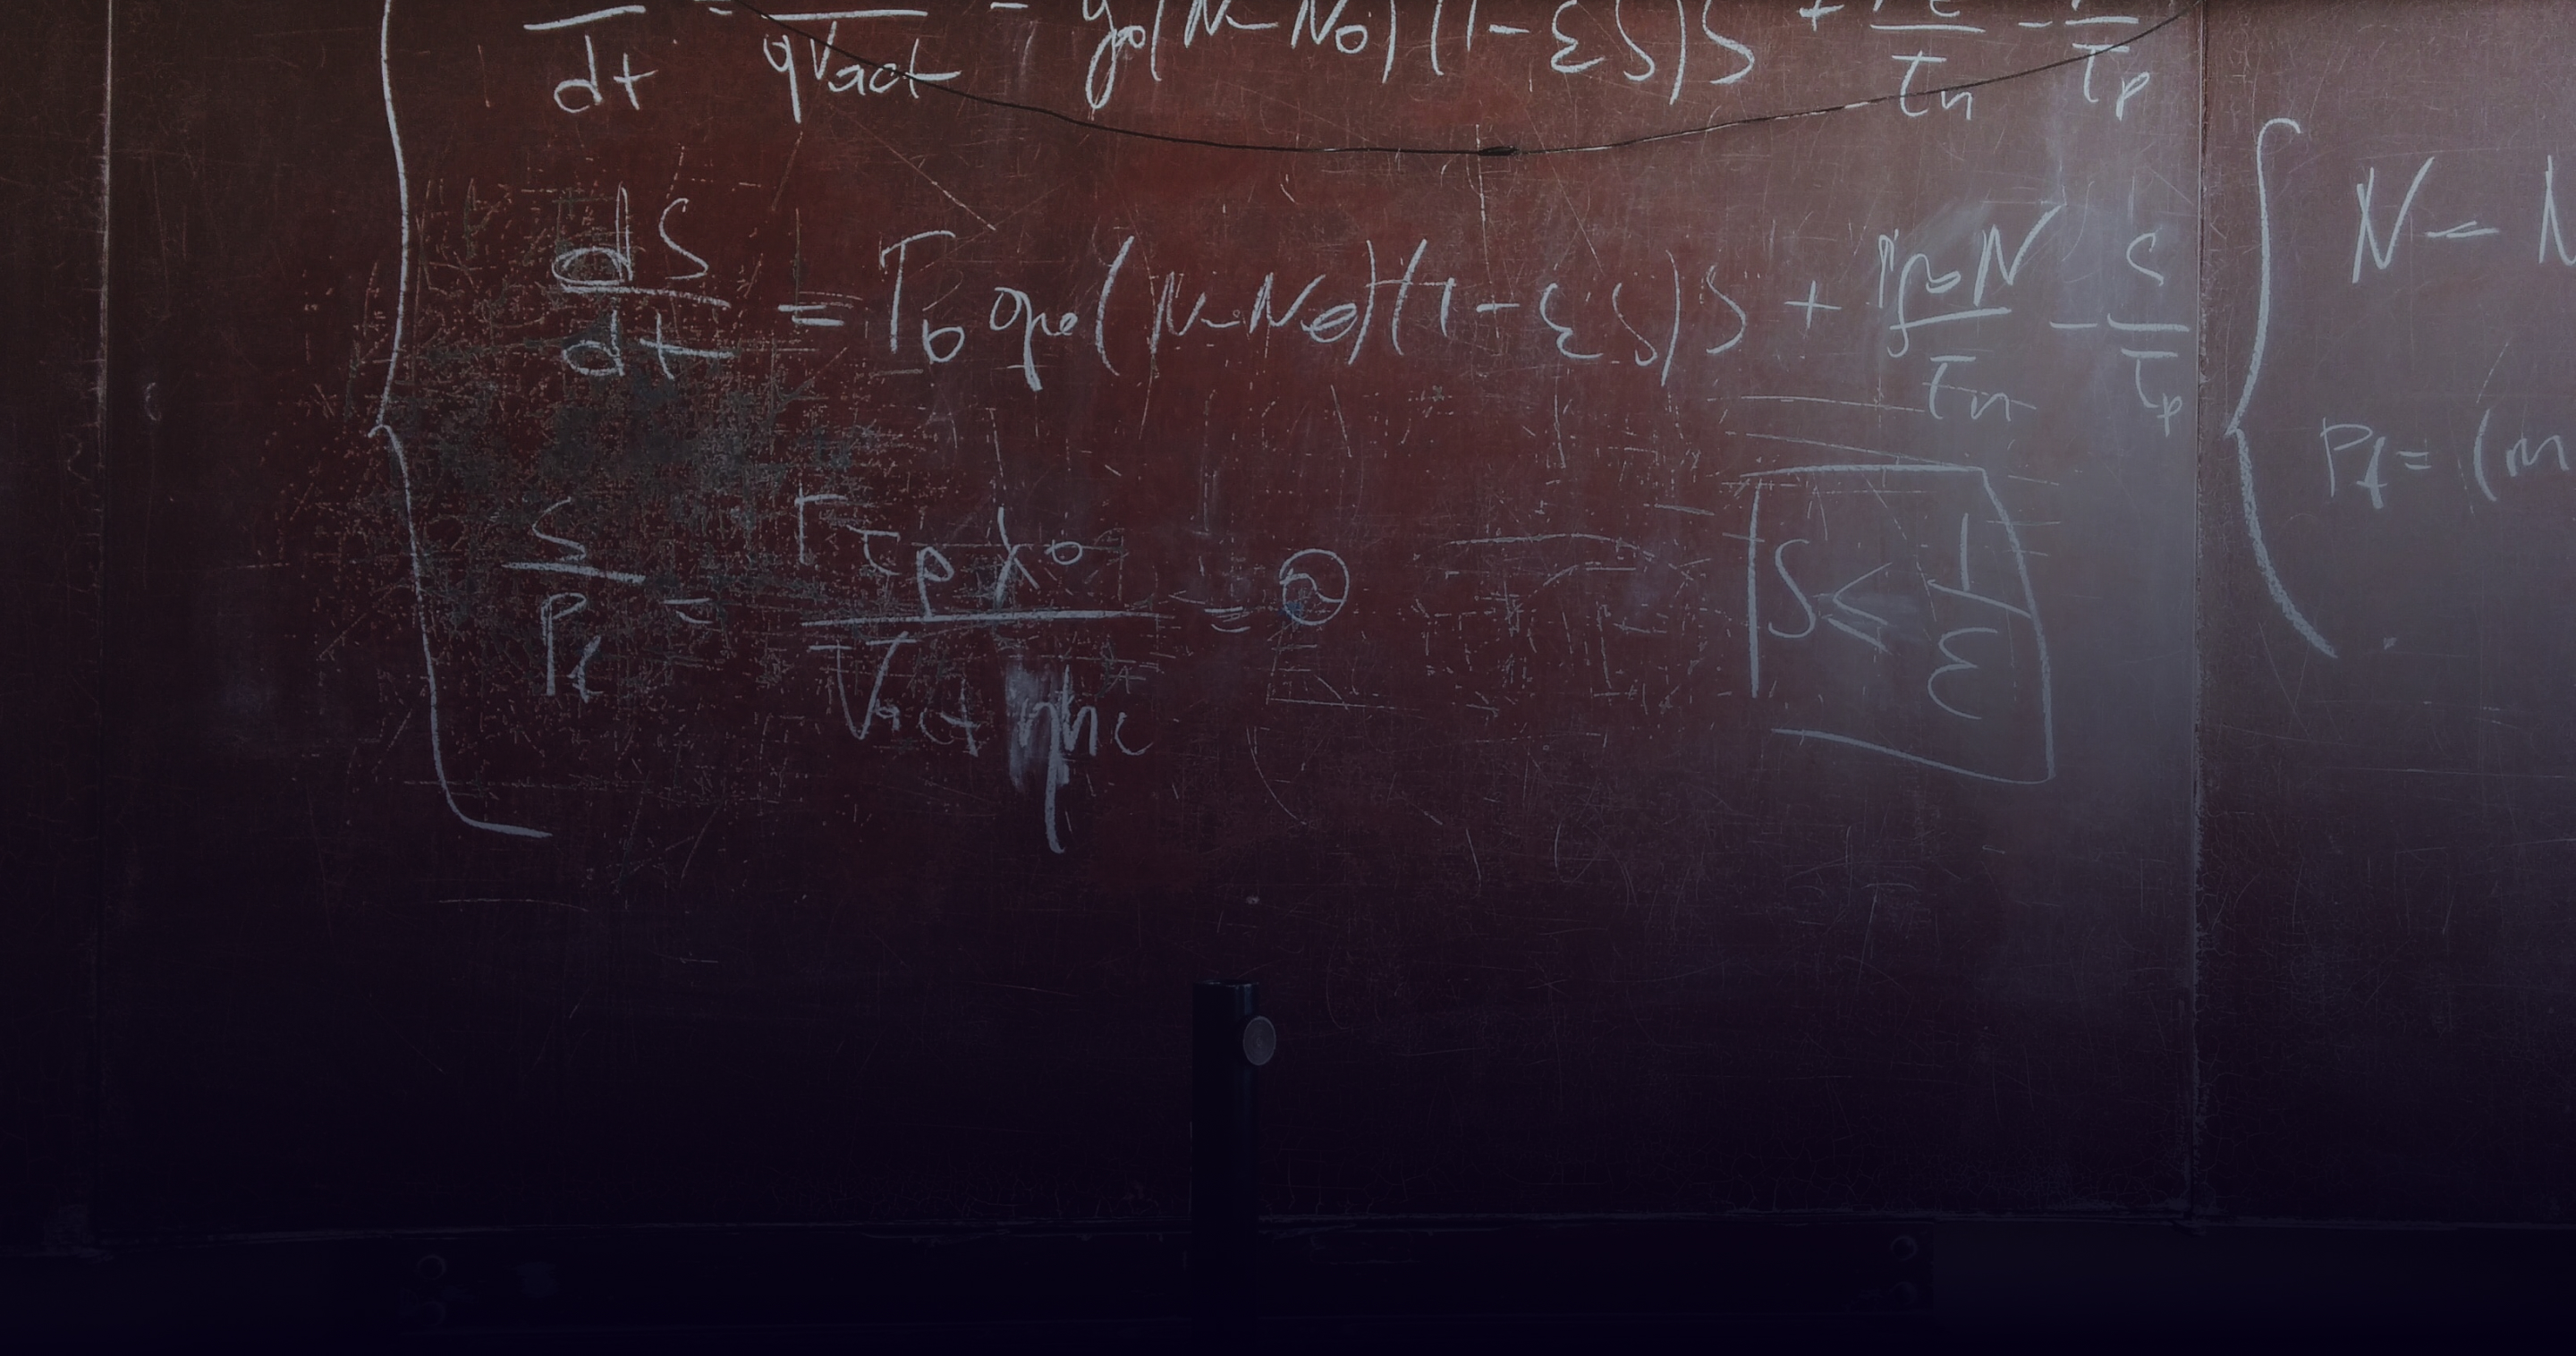 dt = qVact - g0(N-N0)(1-εS)S + τn - τp
dS/dt = Γ0 g0(N-N0)(1-εS)S + ΓβN/τn - S/τp
S/Pf = Γτpλ0/Vact ηhc = ℗
S ≤ 1/ε
N - N
Pf = (m